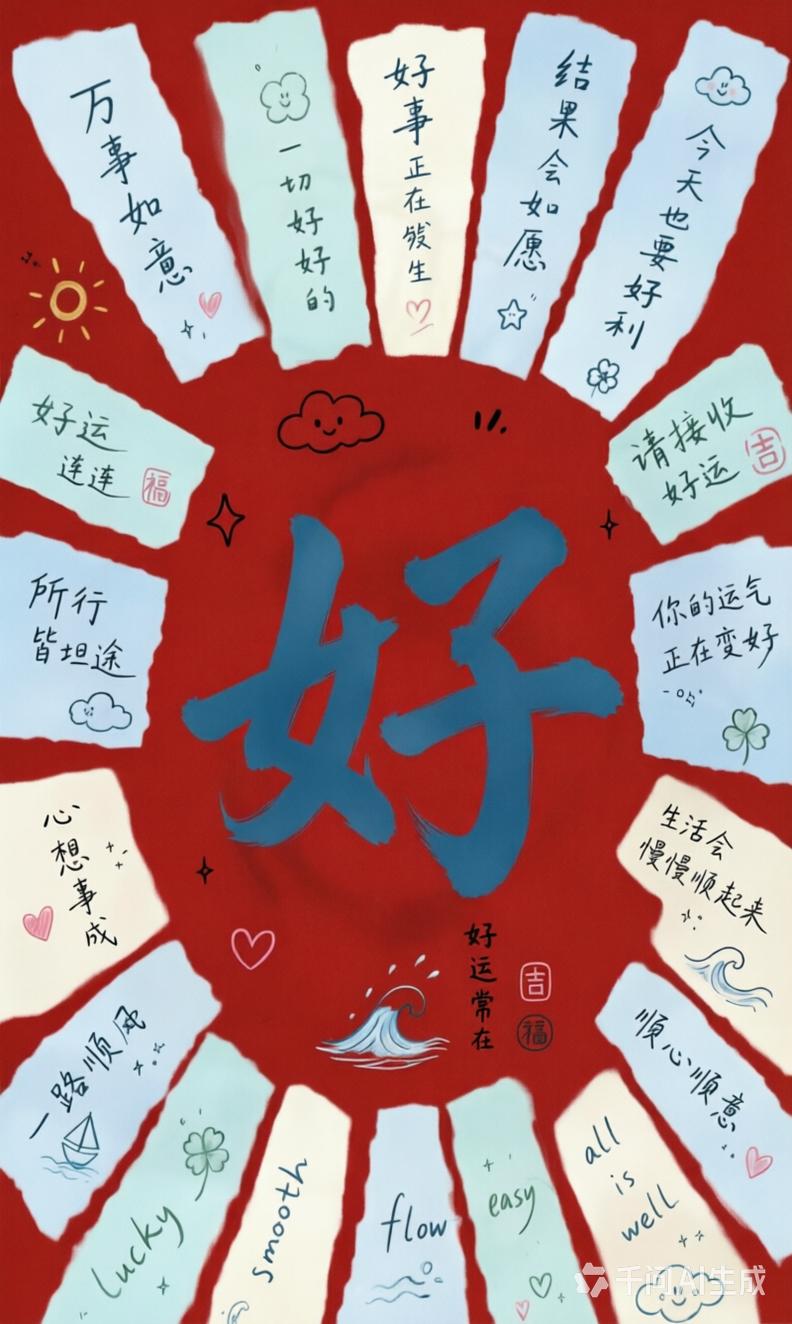 万事如意
一切好好的
好事正在发生
结果会如愿
今天也要好利
好运
连连
福
请接收
好运
吉
所行
皆坦途
好
你的运气
正在变好
心想事成
生活会
慢慢顺起来
好运常在
吉
福
一路顺风
顺心顺意
lucky
smooth
flow
easy
all
is
well
千问AI生成